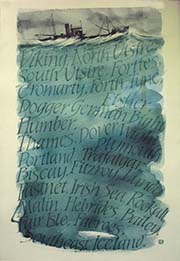 Viking, North Utsire,
South Utsire, Forties,
Cromarty, Forth, Tyne,
Dogger, Fisher,
German Bight,
Humber,
Thames, Dover, Wight,
Portland, Plymouth,
Biscay, Trafalgar,
Fitzroy, Lundy,
Fastnet, Irish Sea, Rockall,
Malin, Hebrides, Bailey,
Fair Isle, Faeroes,
Southeast Iceland